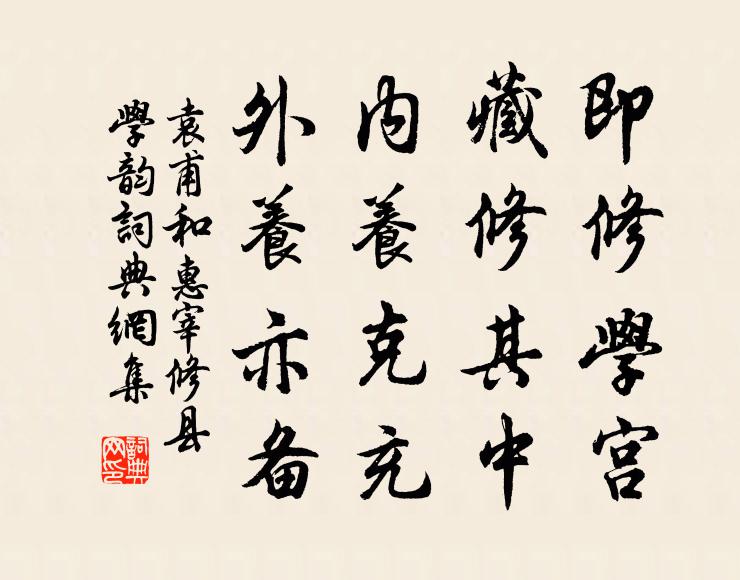 即修學宫
藏修其中
内養克充
外養亦备
袁甫和惠宰修县
學韵詞典網集
詞典網印